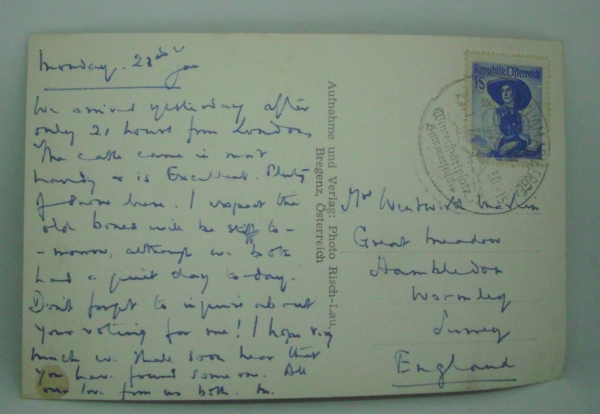 Monday. 23rd Jan
We arrived yesterday after
only 21 hours from London
The cable came in most
handy & is Excellent. Plenty
of snow here. I expect the
old bones will be stiff to-
-morrow, although we both
had a quiet day to-day.
Don't forget to inquire about
your voting for me! I hope very
much we shall soon hear that
you have found some one. All
our love from us both.
Aufnahme und Verlag: Photo Risch-Lau,
Bregenz, Österreich
Republik Österreich
1S
Mrs
Great Meadow
Hambledon
Wormley
Surrey
England